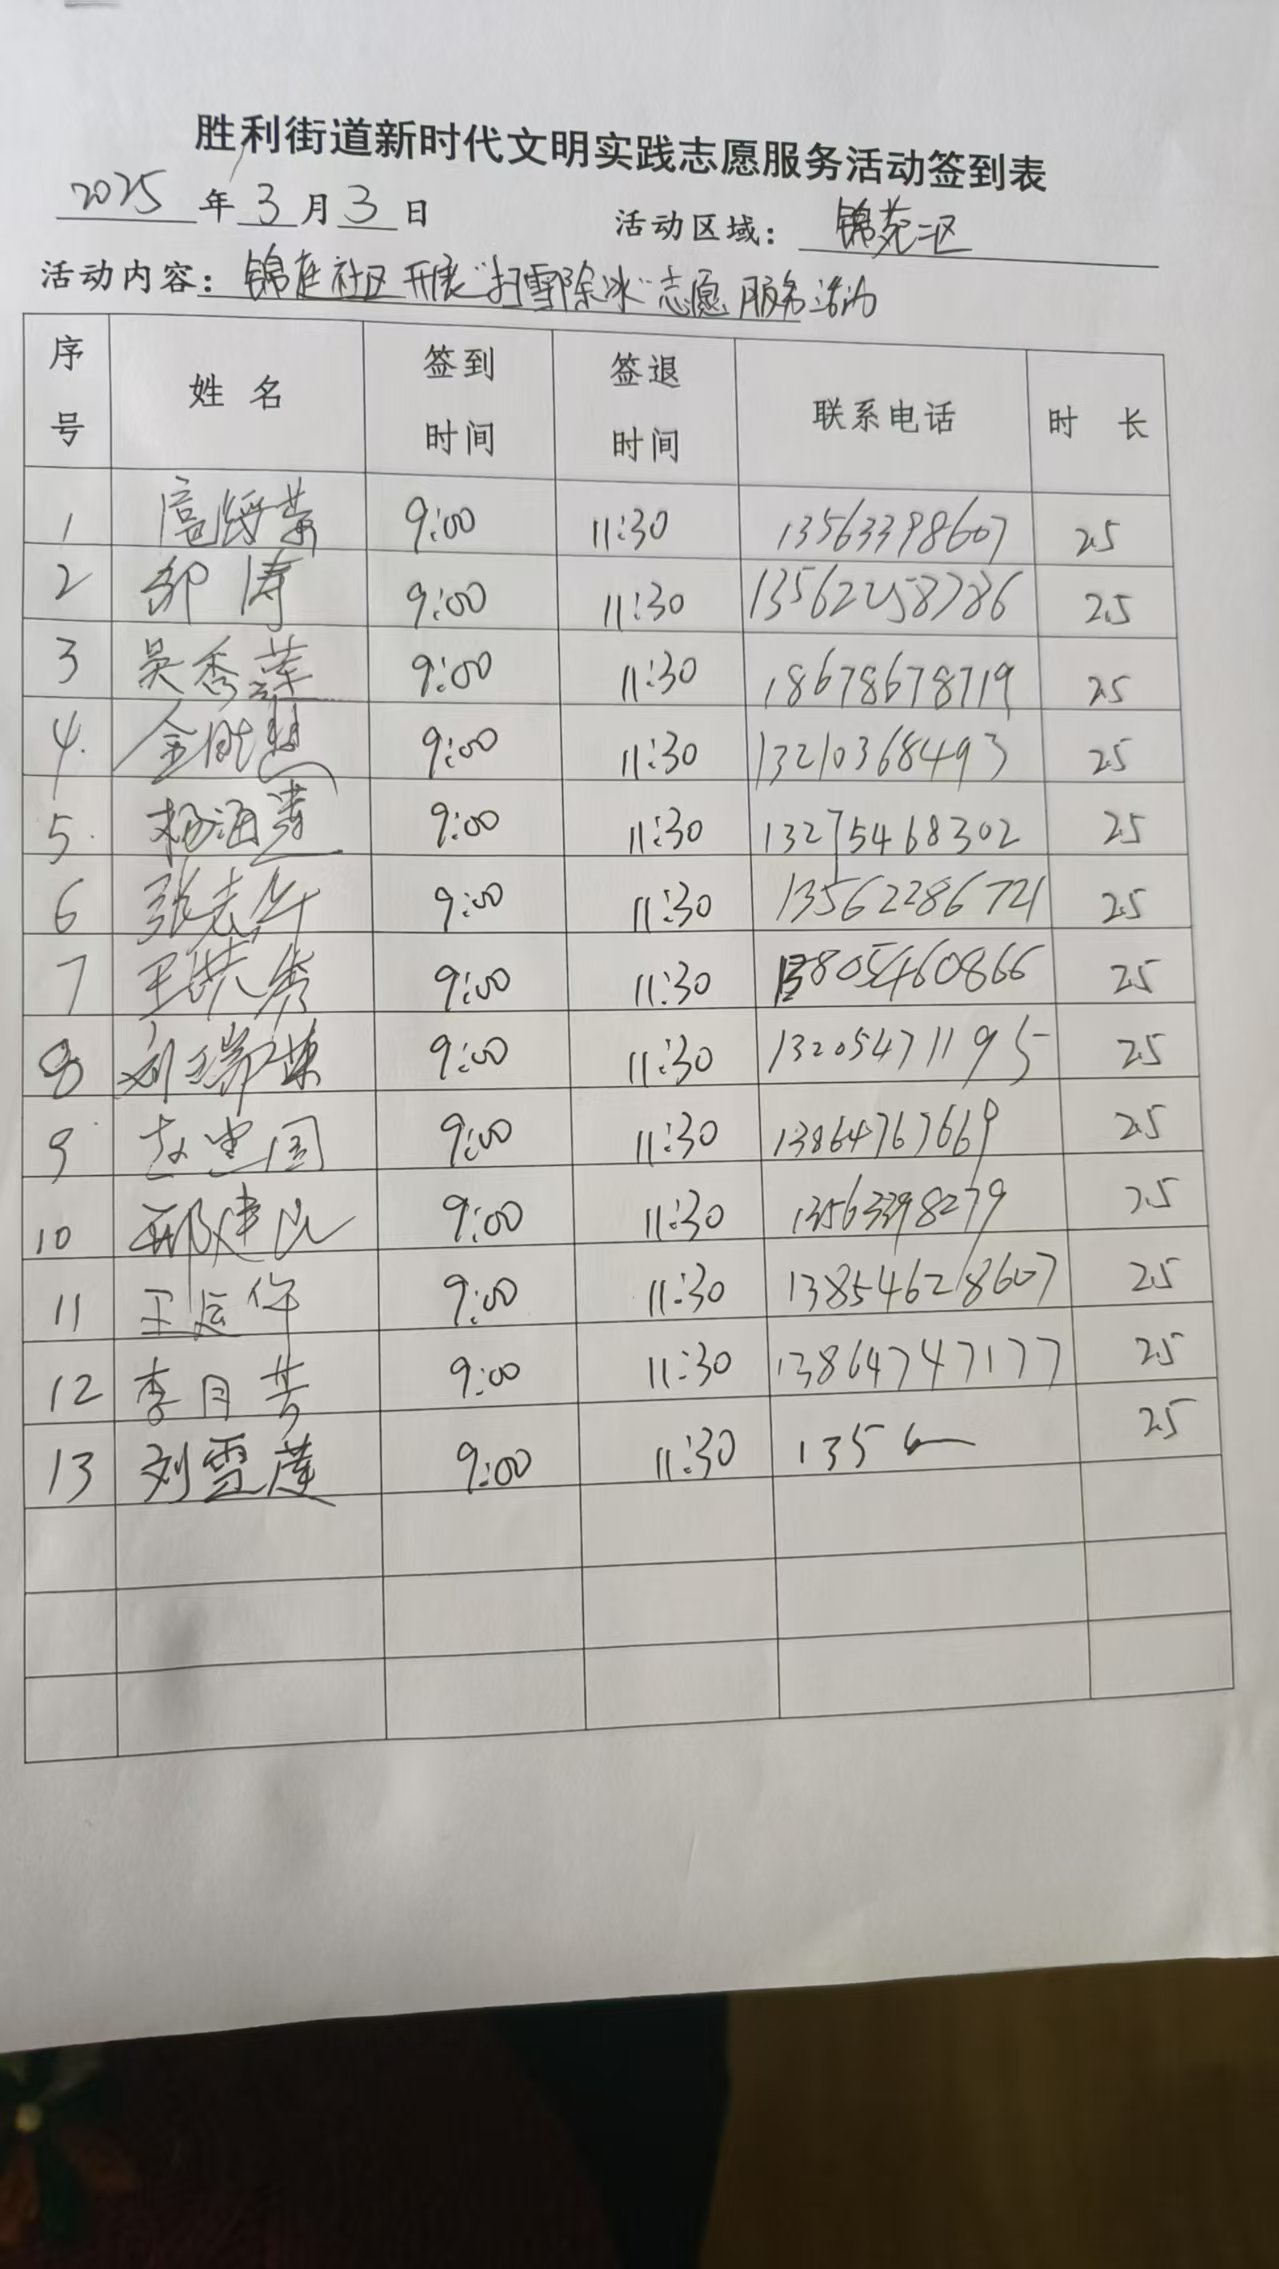 胜利街道新时代文明实践志愿服务活动签到表
2025年3月3日 活动区域：锦苑二区
活动内容：锦庭社区开展"扫雪除冰"志愿服务活动
序号 姓名 签到时间 签退时间 联系电话 时长
1 9:00 11:30 13563398607 2.5
2 邹涛 9:00 11:30 13562258786 2.5
3 吴秀莲 9:00 11:30 18678678719 2.5
4. 金胜慧 9:00 11:30 13210368493 2.5
5. 杨海燕 9:00 11:30 13275468302 2.5
6 张志华 9:00 11:30 13562286721 2.5
7 王洪秀 9:00 11:30 13805460866 2.5
8 刘瑞荣 9:00 11:30 13205471195 2.5
9 赵忠国 9:00 11:30 13864767669 2.5
10 邢建民 9:00 11:30 13563398279 2.5
11 王延华 9:00 11:30 13854628607 2.5
12 李月芳 9:00 11:30 13864747177 2.5
13 刘雪莲 9:00 11:30 1356 2.5